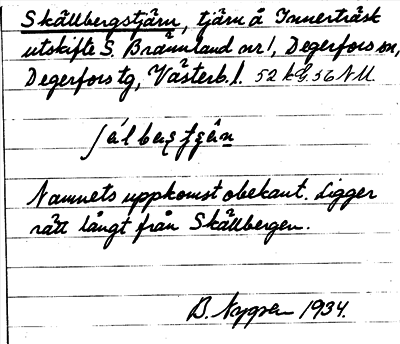 Skällbergstjärn, tjärn å Innerträsk
utskifte S. Brännland nr 1, Degerfors sn,
Degerfors tg, Västerb. l. 52 kb. 56 NU.
Namnets uppkomst obekant. Ligger
rätt långt från Skällbergen.
B. Nygren 1934.